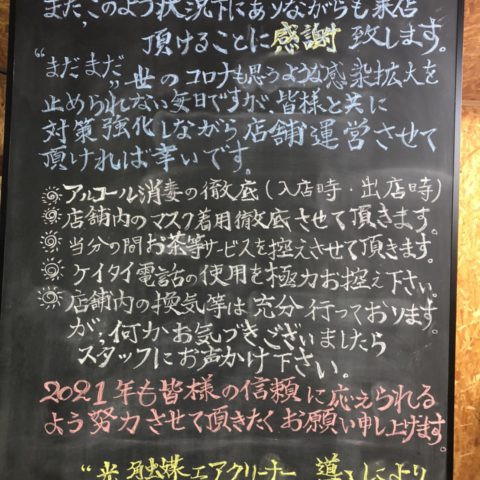 また、このよう状況下にありながらも来店
頂けることに感謝致します。
“まだまだ”世のコロナも思うような感染拡大を
止められない毎日ですが、皆様と共に
対策強化しながら店舗運営させて
頂ければ幸いです。
アルコール消毒の徹底(入店時・出店時)
店舗内のマスク着用徹底させて頂きます。
当分の間お茶等サービスを控えさせて頂きます。
ケイタイ電話の使用を極力お控え下さい。
店舗内の換気等は充分行っております
が、何かお気づきございましたら
スタッフにお声かけ下さい。
2021年も皆様の信頼に応えられる
よう努力させて頂きたくお願い申し上げます。
“光触媒エアクリーナー導入により